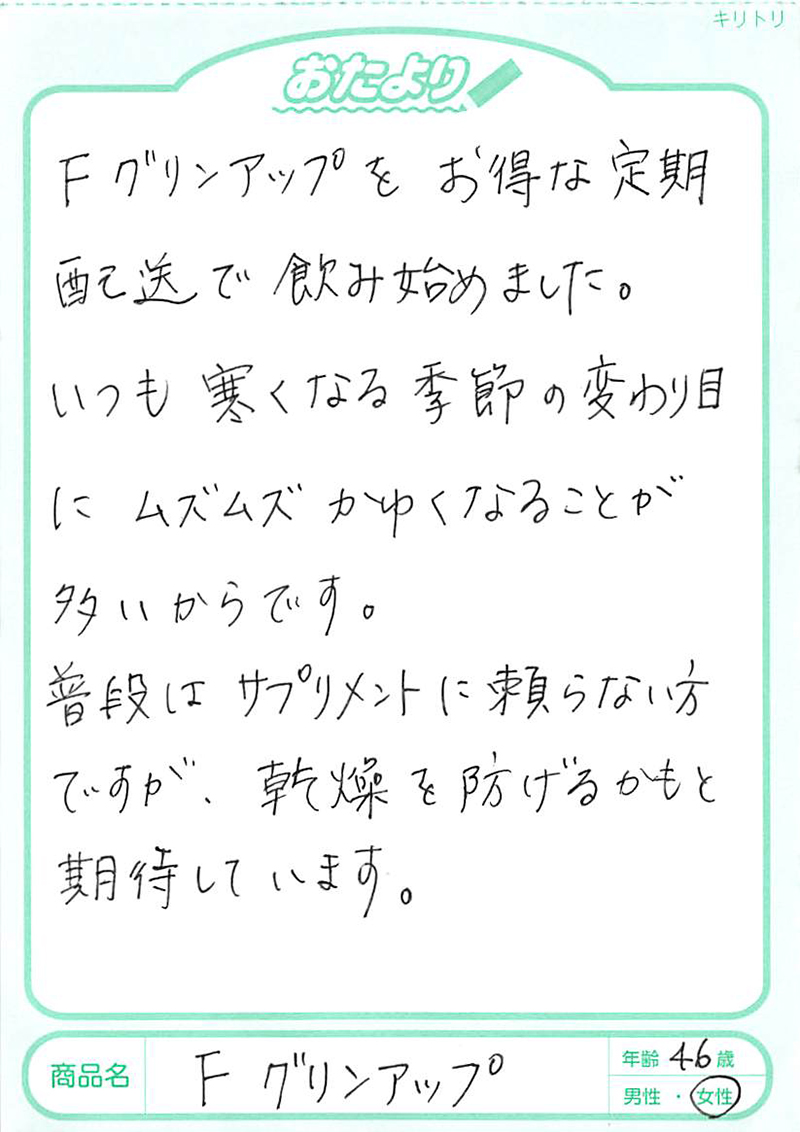 キリトリ
おたより
Fグリンアップを お得な定期
配送で 飲み始めました。
いつも 寒くなる 季節の変わり目
に ムズムズ かゆくなることが
多いからです。
普段は サプリメントに頼らない方
ですが、乾燥を防げるかもと
期待しています。
商品名 F グリンアップ
年齢 46 歳
男性 ・ 女性